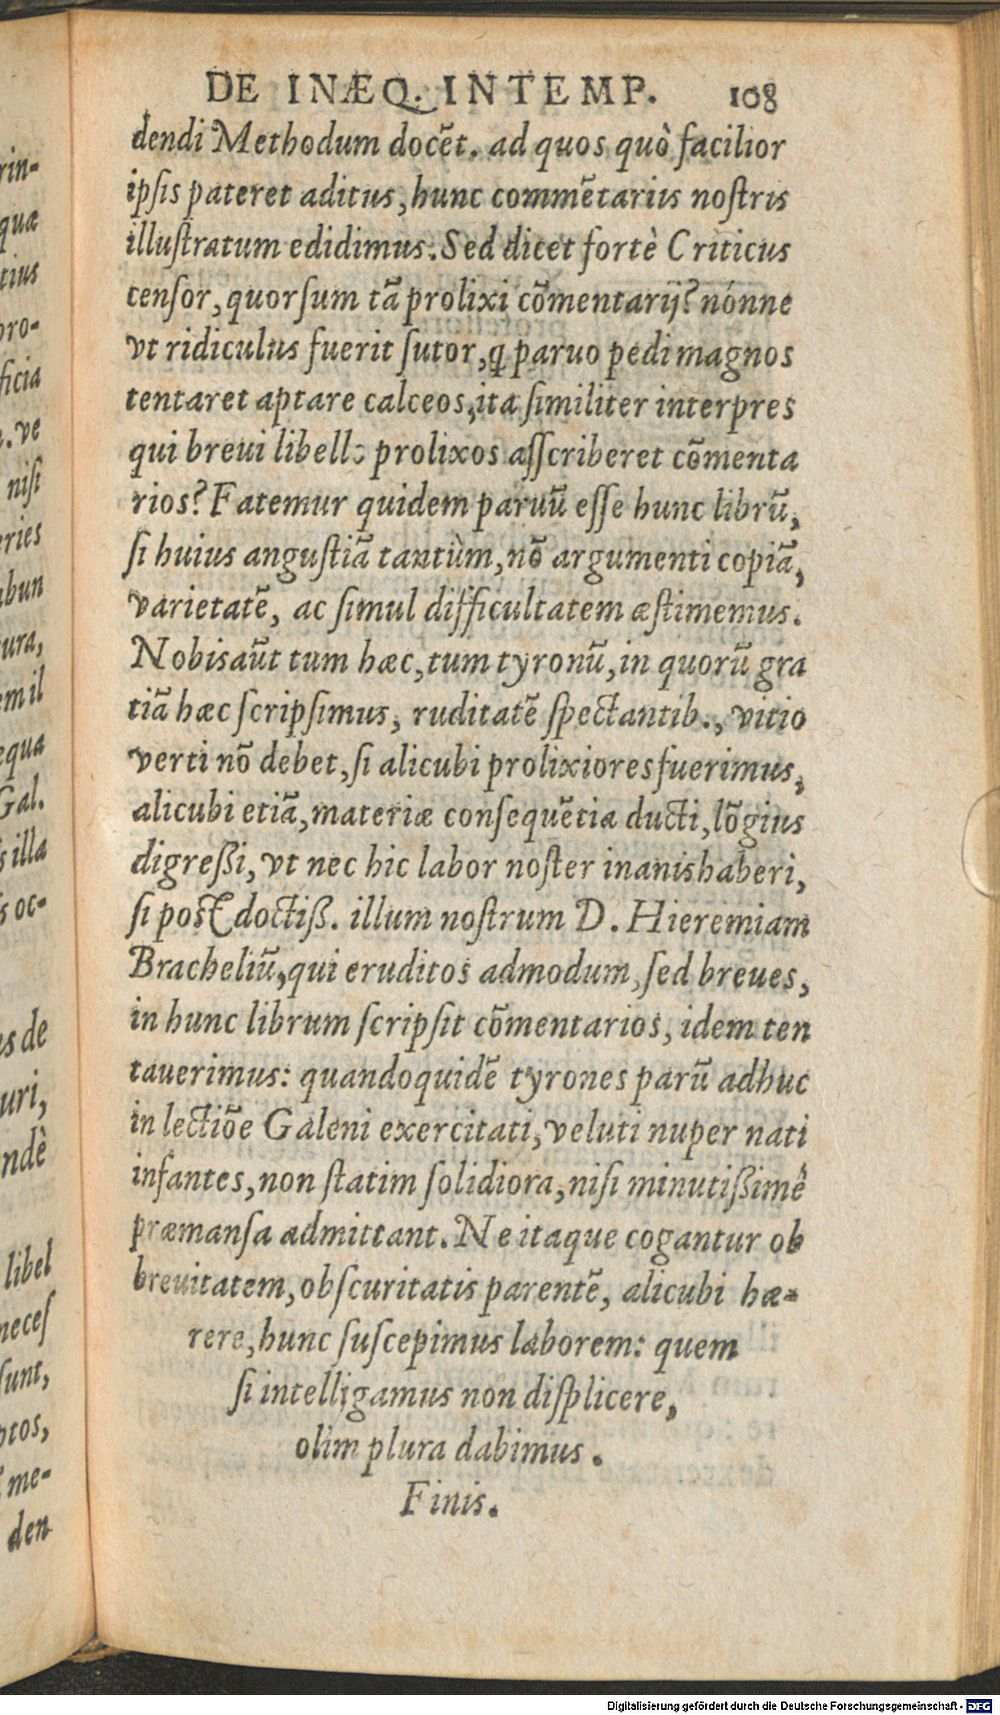 DE INÆQ. INTEMP. 108
dendi Methodum docēt. ad quos quò facilior
ipſis pateret aditus, hunc commētariis noſtris
illuſtratum edidimus. Sed dicet fortè Criticus
cenſor, quorſum tā prolixi cōmentarij? nónne
vt ridiculus fuerit ſutor, ꝙ paruo pedi magnos
tentaret aptare calceos, ita ſimiliter interpres
qui breui libello prolixos aſſcriberet cōmenta
rios? Fatemur quidem paruū eſſe hunc librū,
ſi huius anguſtiā tantùm, nō argumenti copiā,
varietatē, ac ſimul difficultatem æſtimemus.
Nobis aūt tum hæc, tum tyronū, in quorū gra
tiā hæc ſcripſimus, ruditatē ſpectantib., vitio
verti nō debet, ſi alicubi prolixiores fuerimus,
alicubi etiā, materiæ conſequētia ducti, lōgius
digreßi, vt nec hic labor noſter inanis haberi,
ſi poſt doctiß. illum noſtrum D. Hieremiam
Bracheliū, qui eruditos admodum, ſed breues,
in hunc librum ſcripſit cōmentarios, idem ten
tauerimus: quandoquidē tyrones parū adhuc
in lectiōe Galeni exercitati, veluti nuper nati
infantes, non ſtatim ſolidiora, niſi minutißimè
præmanſa admittant. Ne itaque cogantur ob
breuitatem, obſcuritatis parentē, alicubi hæ-
rere, hunc ſuſcepimus laborem: quem
ſi intelligamus non diſplicere,
olim plura dabimus.
Finis.
rin-
quæ
tius
pro-
ficia
. ve
niſi
eries
abun
ura,
em il
equa
Gal.
illa
s oc-
us de
uri,
ndè
libel
neceſ
ſunt,
ptos,
me-
den
Digitalisierung gefördert durch die Deutsche Forschungsgemeinschaft - DFG